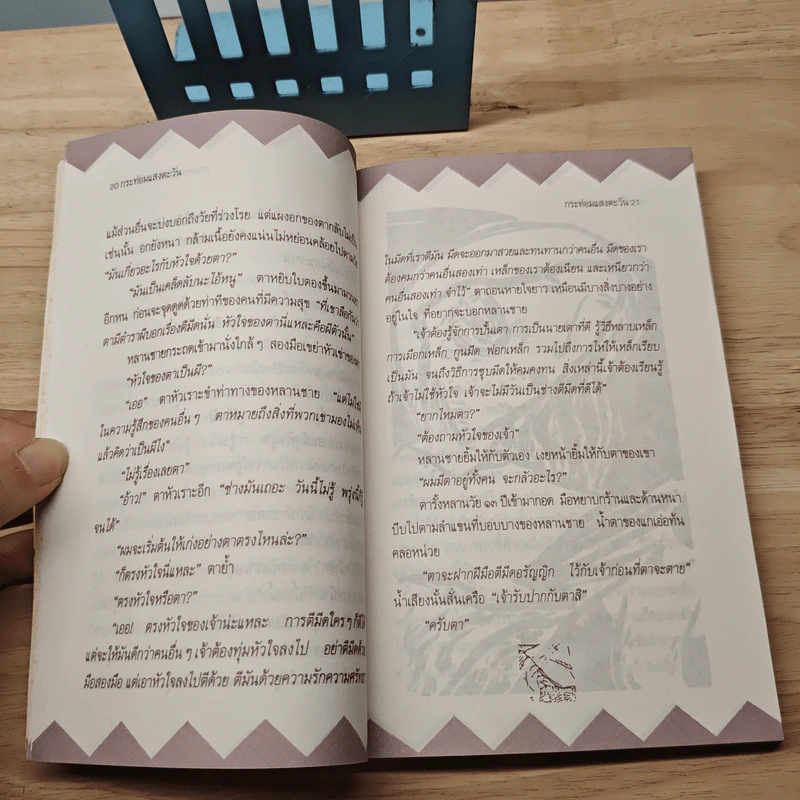 20 กระท่อมแสงตะวัน
แม้ส่วนอื่นจะบ่งบอกถึงวัยที่ร่วงโรย แต่แผงอกของตากลับไม่เป็น
เช่นนั้น อกยังหนา กล้ามเนื้อยังคงแน่นไม่หย่อนคล้อยไปตามวัย
“มันเกี่ยวอะไรกับหัวใจด้วยตา?”
“มันเป็นเคล็ดลับนะไอ้หนู” ตาหยิบใบตองขึ้นมามวน
อีกหน ก่อนจะจุดดูดด้วยท่าทีของคนที่มีความสุข “ที่เขาลือกันว่า
ตามีตำราผีบอกเรื่องตีมีดนั่น หัวใจของตานี่แหละคือผีตัวนั้น”
หลานชายกระถดเข้ามานั่งใกล้ๆ สองมือเขย่าหัวเข่าของ
“หัวใจของตาเป็นผี?”
“เออ” ตาหัวเราะขำท่าทางของหลานชาย “แต่ไม่ใช่
ในความรู้สึกของคนอื่นๆ ตาหมายถึงสิ่งที่พวกเขามองไม่เห็น
แล้วคิดว่าเป็นผีไง”
“ไม่รู้เรื่องเลยตา”
“อ้าว!” ตาหัวเราะอีก “ช่างมันเถอะ วันนี้ไม่รู้ พรุ่งนี้
จนได้”
“ผมจะเริ่มต้นให้เก่งอย่างตาตรงไหนล่ะ?”
“ก็ตรงหัวใจนี่แหละ” ตาย้ำ
“ตรงหัวใจหรือตา?”
“เออ! ตรงหัวใจของเจ้าน่ะแหละ การตีมีดใครๆ ก็ตี
แต่จะให้มันดีกว่าคนอื่นๆ เจ้าต้องทุ่มหัวใจลงไป อย่าตีมีดด้วย
มือสองมือ แต่เอาหัวใจลงไปตีด้วย ตีมันด้วยความรักความศรัทธา
กระท่อมแสงตะวัน 21
ในมีดที่เราตีมัน มีดจะออกมาสวยและทนทานกว่าคนอื่น มีดของเรา
ต้องคมกว่าคนอื่นสองเท่า เหล็กของเราต้องเนียน และเหนียวกว่า
คนอื่นสองเท่า จำไว้” ตาถอนหายใจยาว เหมือนมีบางสิ่งบางอย่าง
อยู่ในใจ ที่อยากจะบอกหลานชาย
“เจ้าต้องรู้จักการปั้นเตา การเป็นนายเตาที่ดี รู้วิธีหลาบเหล็ก
การเผือกเหล็ก กูนมีด ฟอกเหล็ก รวมไปถึงการไห่ให้เหล็กเรียบ
เป็นมัน จนถึงวิธีการชุบมีดให้คมคงทน สิ่งเหล่านี้เจ้าต้องเรียนรู้
ถ้าเจ้าไม่ใช้หัวใจ เจ้าจะไม่มีวันเป็นช่างตีมีดที่ดีได้”
“ยากไหมตา?”
“ต้องถามหัวใจของเจ้า”
หลานชายยิ้มให้กับตัวเอง เงยหน้ายิ้มให้กับตาของเขา
“ผมมีตาอยู่ทั้งคน จะกลัวอะไร?”
ตารั้งหลานวัย ๑๓ ปีเข้ามากอด มือหยาบกร้านและด้านหนา
บีบไปตามลำแขนที่บอบบางของหลานชาย น้ำตาของแกเอ่อท้น
คลอหน่วย
“ตาจะฝากฝีมือตีมีดอรัญญิก ไว้กับเจ้าก่อนที่ตาจะตาย”
น้ำเสียงนั้นสั่นเครือ “เจ้ารับปากกับตาสิ”
“ครับตา”